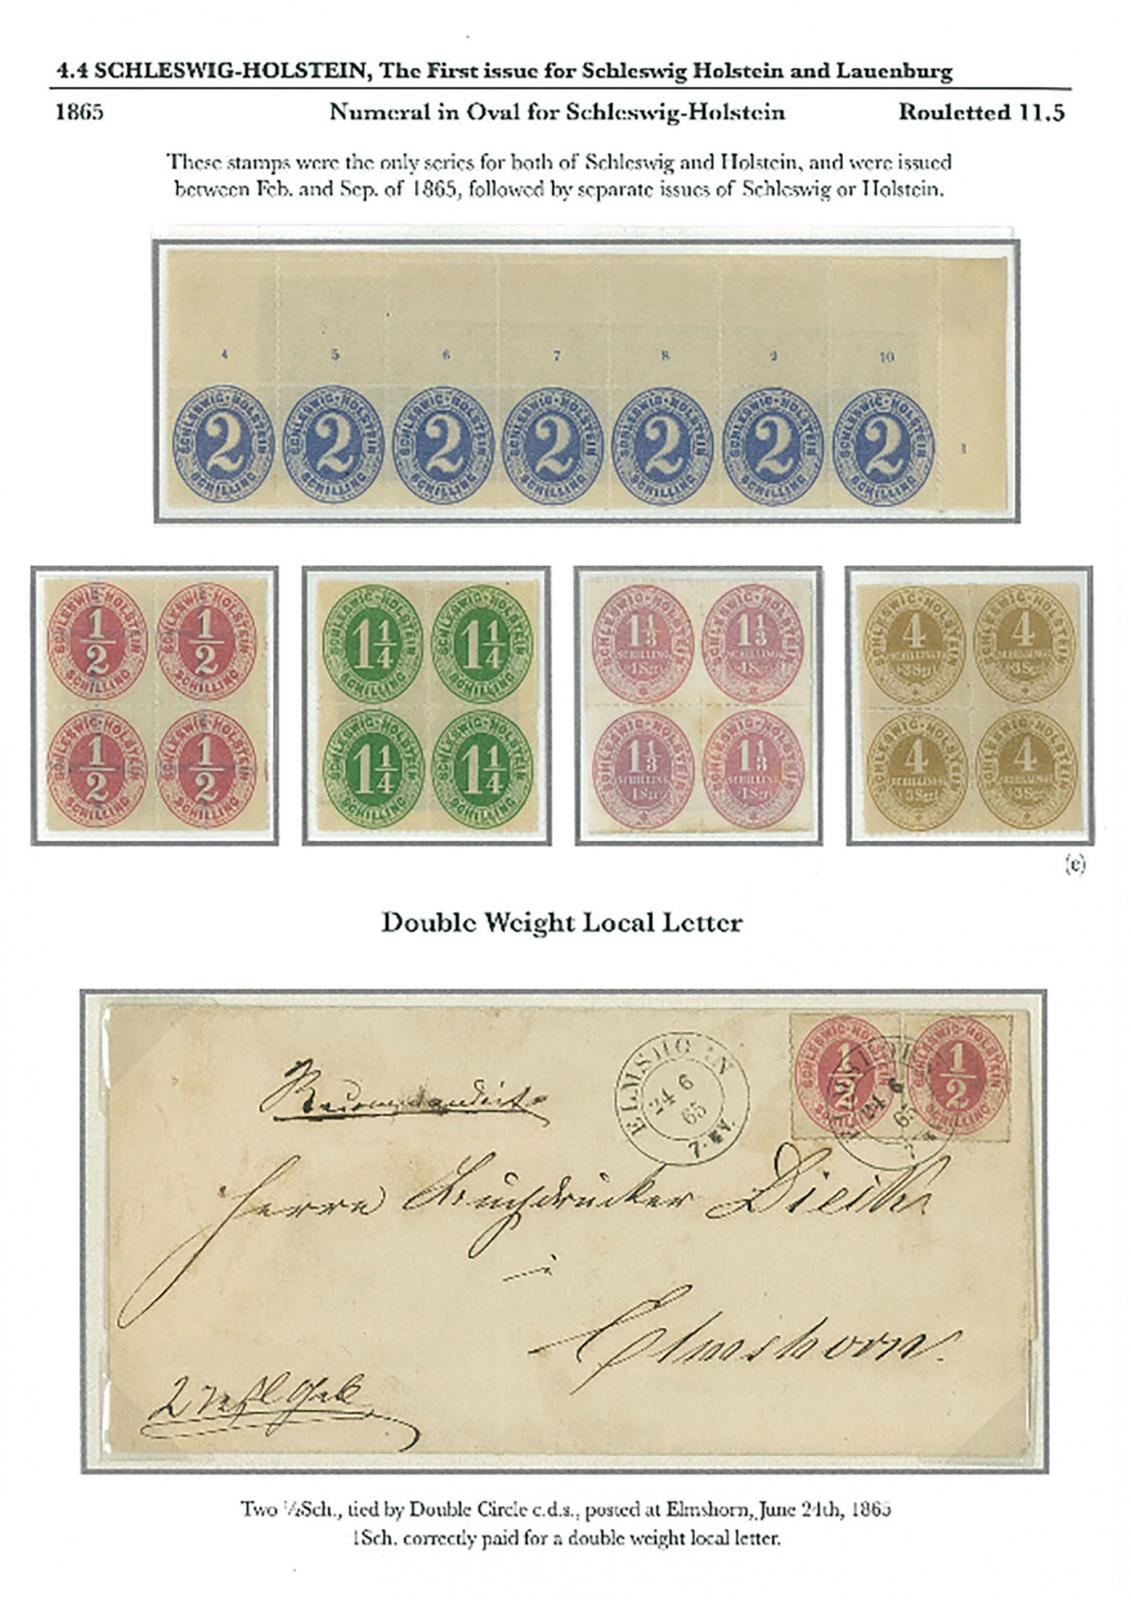 4.4 SCHLESWIG-HOLSTEIN, The First issue for Schleswig Holstein and Lauenburg
1865 Numeral in Oval for Schleswig-Holstein Rouletted 11.5
These stamps were the only series for both of Schleswig and Holstein, and were issued
between Feb. and Sep. of 1865, followed by separate issues of Schleswig or Holstein.
4 5 6 7 8 9 10
SCHLESWIG-HOLSTEIN 2 SCHILLING
SCHLESWIG-HOLSTEIN 2 SCHILLING
SCHLESWIG-HOLSTEIN 2 SCHILLING
SCHLESWIG-HOLSTEIN 2 SCHILLING
SCHLESWIG-HOLSTEIN 2 SCHILLING
SCHLESWIG-HOLSTEIN 2 SCHILLING
SCHLESWIG-HOLSTEIN 2 SCHILLING
1
SCHLESWIG-HOLSTEIN 1/2 SCHILLING
SCHLESWIG-HOLSTEIN 1/2 SCHILLING
SCHLESWIG-HOLSTEIN 1/2 SCHILLING
SCHLESWIG-HOLSTEIN 1/2 SCHILLING
SCHLESWIG-HOLSTEIN 1 1/4 SCHILLING
SCHLESWIG-HOLSTEIN 1 1/4 SCHILLING
SCHLESWIG-HOLSTEIN 1 1/4 SCHILLING
SCHLESWIG-HOLSTEIN 1 1/4 SCHILLING
SCHLESWIG-HOLSTEIN 1 1/3 SCHILLING 1 Sgr.
SCHLESWIG-HOLSTEIN 1 1/3 SCHILLING 1 Sgr.
SCHLESWIG-HOLSTEIN 1 1/3 SCHILLING 1 Sgr.
SCHLESWIG-HOLSTEIN 1 1/3 SCHILLING 1 Sgr.
SCHLESWIG-HOLSTEIN 4 SCHILLINGE 3 Sgr.
SCHLESWIG-HOLSTEIN 4 SCHILLINGE 3 Sgr.
SCHLESWIG-HOLSTEIN 4 SCHILLINGE 3 Sgr.
SCHLESWIG-HOLSTEIN 4 SCHILLINGE 3 Sgr.
Double Weight Local Letter
SCHLESWIG-HOLSTEIN 1/2 SCHILLING
SCHLESWIG-HOLSTEIN 1/2 SCHILLING
ELMSHORN
24 6
65
24 6
65
Herrn Buchdrucker
in
Elmshorn.
Two ½Sch., tied by Double Circle c.d.s., posted at Elmshorn, June 24th, 1865
1Sch. correctly paid for a double weight local letter.